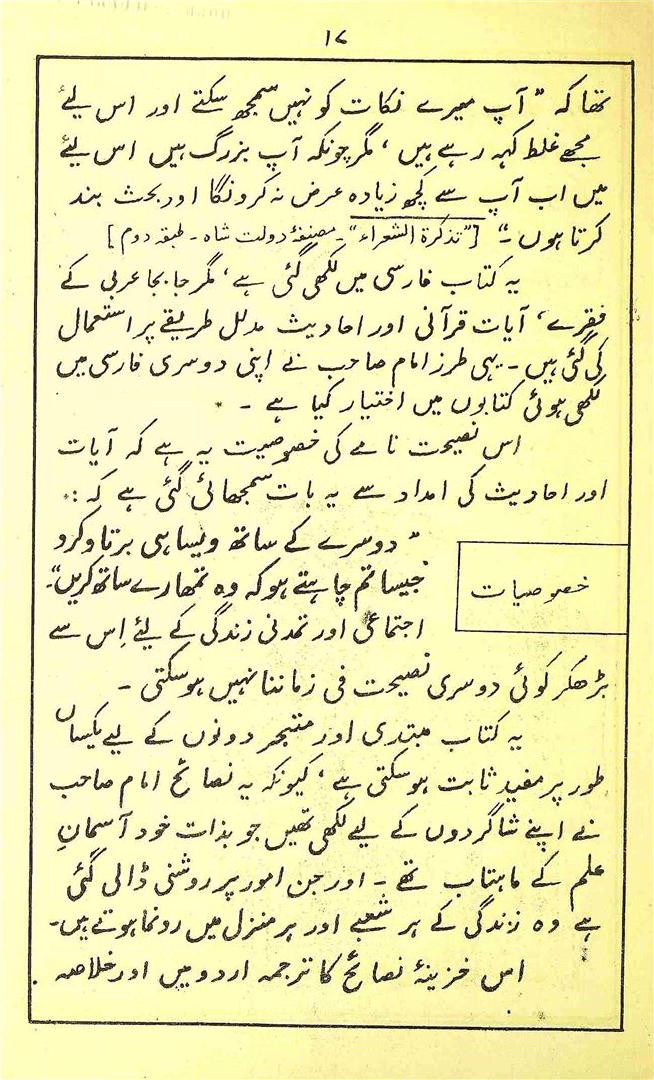 ۱۷
تھا کہ " آپ میرے نکات کو نہیں سمجھ سکتے اور اس لیٔے
مجھے غلط کہہ رہے ہیں ، مگر چونکہ آپ بزرگ ہیں اس لیٔے
میں اب آپ سے کچھ زیادہ عرض نہ کرونگا اور بحث بند
کرتا ہوں ۔" [ "تذکرۃ الشعراء" ۔ مصنفۂ دولت شاہ ۔ طبقہ دوم ]
یہ کتاب فارسی میں لکھی گئی ہے ، مگر جابجا عربی کے
فقرے ، آیات قرآنی اور احادیث مدلل طریقے پر استعمال
کی گئی ہیں ۔ یہی طرز امام صاحب نے اپنی دوسری فارسی میں
لکھی ہوئی کتابوں میں اختیار کیا ہے ۔
اس نصیحت نامے کی خصوصیت یہ ہے کہ آیات
اور احادیث کی امداد سے یہ بات سمجھائی گئی ہے کہ :
خصوصیات
" دوسرے کے ساتھ ویسا ہی برتاو کرو
جیسا تم چاہتے ہو کہ وہ تمھارے ساتھ کریں"۔
اجتماعی اور تمدنی زندگی کے لیٔے اِس سے
بڑھکر کوئی دوسری نصیحت فی زماننا نہیں ہو سکتی ۔
یہ کتاب مبتدی اور متبحر دونوں کے لیے یکساں
طور پر مفید ثابت ہو سکتی ہے ، کیونکہ یہ نصائح امام صاحب
نے اپنے شاگردوں کے لیے لکھی تھیں جو بذات خود آسمانِ
علم کے ماہتاب تھے ۔ اور جن امور پر روشنی ڈالی گئی
ہے وہ زندگی کے ہر شعبے اور ہر منزل میں رونما ہوتے ہیں۔
اس خزینۂ نصائح کا ترجمہ اردو میں اور خلاصہ